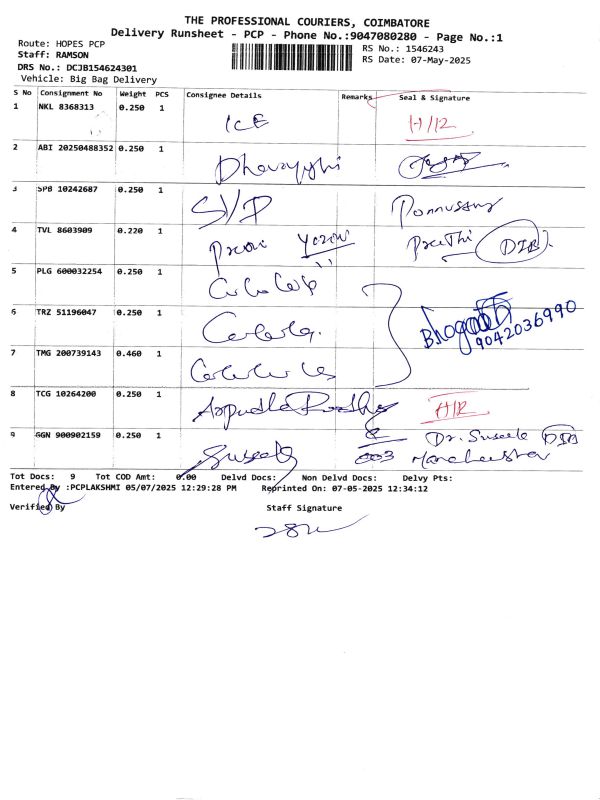 THE PROFESSIONAL COURIERS, COIMBATORE
Delivery Runsheet - PCP - Phone No.:9047080280 - Page No.:1
Route: HOPES PCP
Staff: RAMSON
DRS No.: DCJB154624301
Vehicle: Big Bag Delivery
RS No.: 1546243
RS Date: 07-May-2025
S No Consignment No Weight PCS Consignee Details Remarks Seal & Signature
1 NKL 8368313 0.250 1 ICE H/R
2 ABI 20250488352 0.250 1
3 SPB 10242687 0.250 1 SVP Ponnusamy
4 TVL 8603909 0.220 1 Preethi DIB
5 PLG 600032254 0.250 1
6 TRZ 51196047 0.250 1 9042036990
7 TMG 200739143 0.460 1
8 TCG 10264200 0.250 1 H/R
9 GGN 900902159 0.250 1 Suseela 003 Dr. Suseela
Tot Docs: 9 Tot COD Amt: 0.00 Delvd Docs: Non Delvd Docs: Delvy Pts:
Entered By :PCPLAKSHMI 05/07/2025 12:29:28 PM Reprinted On: 07-05-2025 12:34:12
Verified By Staff Signature